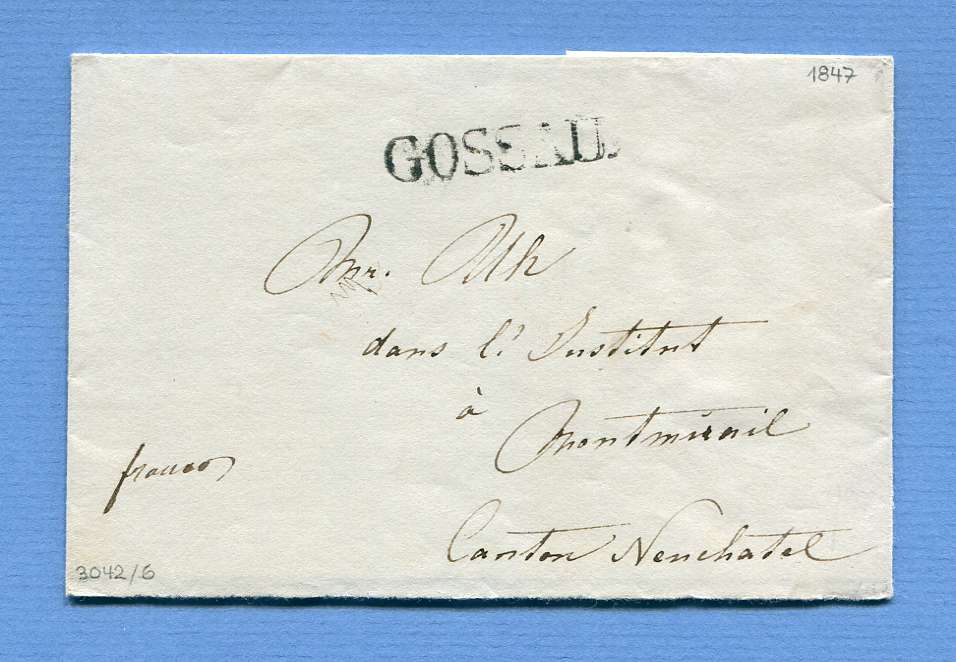 1847
GOSSAU.
Mr. Uh
dans l' Institut
à
Montmirail
franco
Canton Neuchatel
3042/6